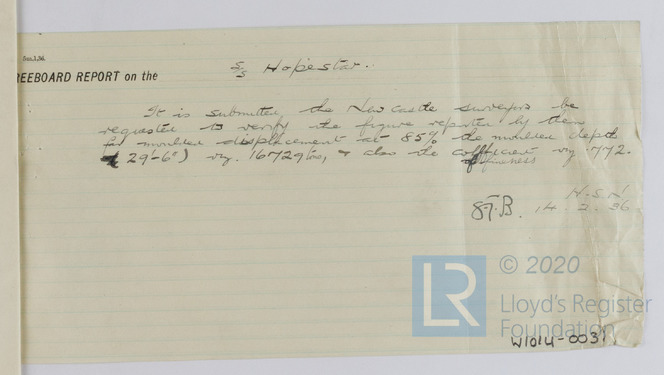 REEBOARD REPORT on the
S/S Hopestar.
It is submitted the Newcastle surveyors be
requested to verify the figure reported by them
for moulded displacement at 85% the moulded depth
(29'-6") viz. 16729 tons, & also the coefficient viz .772.
of fineness
14.2.36.
© 2020
LR
Lloyd's Register
Foundation
W1014-0031